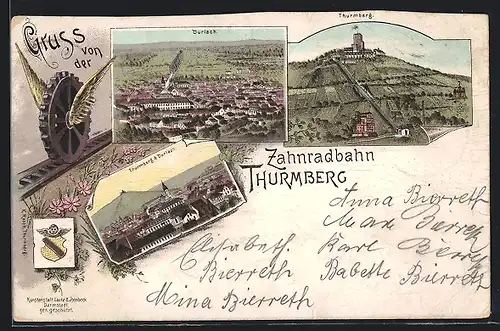 Gruss
von
der
Durlach.
Thurmberg.
Thurmberg & Durlach.
Zahnradbahn
THURMBERG
Anna Bierreth
Max Bierreth
Elisabeth Karl Bierreth
Bierreth Babette Bierreth
Mina Bierreth
Kunstanstalt Lautz & Isenbeck
Darmstadt
ges. geschützt.